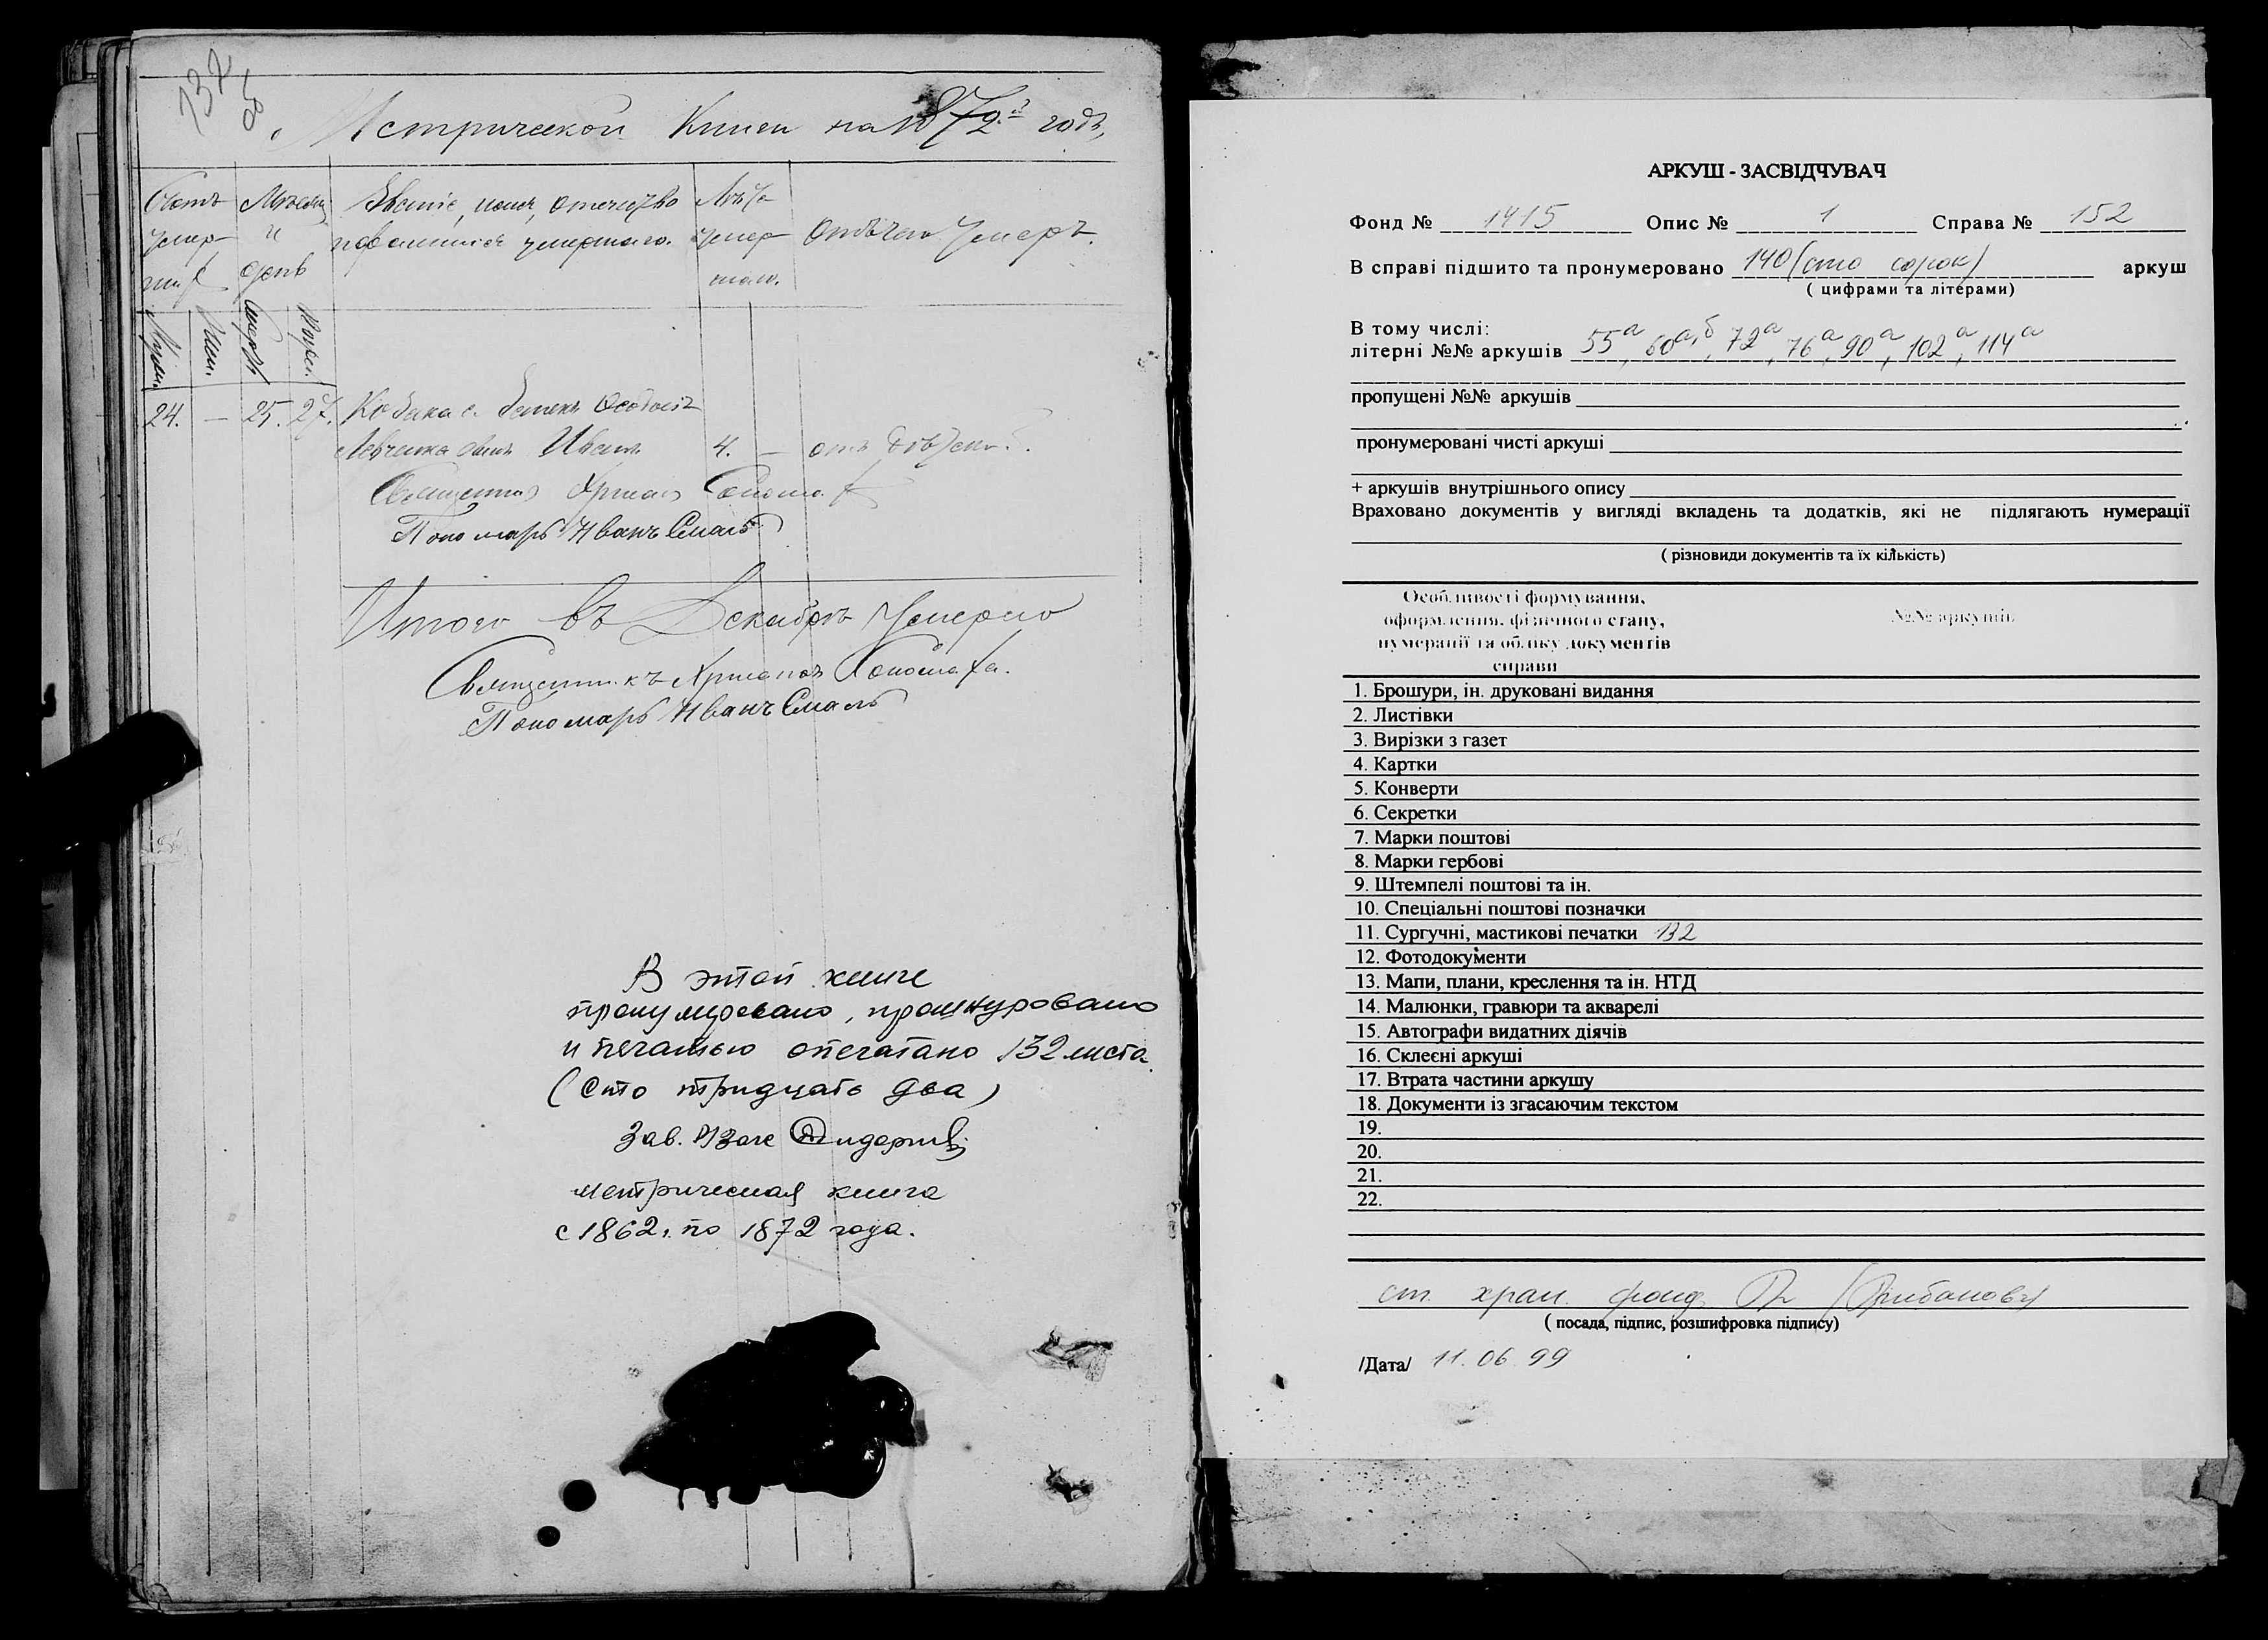 132
об
Метрической Книги на 1872й годъ,
Счетъ
умер-
ших
Мѣсяц
и
день
Званіе, имя, отечество
и фамилия умершаго.
Лѣта
умер
шаго.
Отъ чего Умеръ.
Мужн.
Жен.
Смерть
Погре.
24. — 25. 27.
сынъ Иванъ 4. —
Священник
Пономарь Иванъ Смаль
Итого въ Декабрѣ Умерло
Священникъ
Пономарь Иванъ Смаль
В этой книге
пронумеровано, прошнуровано
и печатью опечатано 132 листа.
(Сто тридцать два)
Зав.
метрическая книга
с 1862г. по 1872 года.
АРКУШ - ЗАСВІДЧУВАЧ
Фонд № 1415 Опис № 1 Справа № 152
В справі підшито та пронумеровано 140 (сто сорок) аркуш
( цифрами та літерами)
В тому числі:
літерні №№ аркушів 55а, 60а,б, 72а, 76а, 90а, 102а, 114а
пропущені №№ аркушів
пронумеровані чисті аркуші
+ аркушів внутрішнього опису
Враховано документів у вигляді вкладень та додатків, які не підлягають нумерації
( різновиди документів та їх кількість)
Особливості формування,
оформлення, фізичного стану,
нумерації та обліку документів
справи
№№ аркушів
1. Брошури, ін. друковані видання
2. Листівки
3. Вирізки з газет
4. Картки
5. Конверти
6. Секретки
7. Марки поштові
8. Марки гербові
9. Штемпелі поштові та ін.
10. Спеціальні поштові позначки
11. Сургучні, мастикові печатки 132
12. Фотодокументи
13. Мапи, плани, креслення та ін. НТД
14. Малюнки, гравюри та акварелі
15. Автографи видатних діячів
16. Склеєні аркуші
17. Втрата частини аркушу
18. Документи із згасаючим текстом
19.
20.
21.
22.
ст. хран. фонд.
( посада, підпис, розшифровка підпису)
/Дата/ 11.06.99